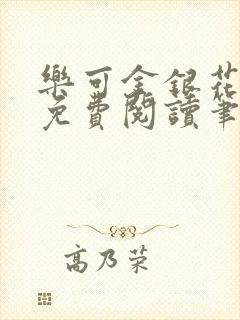 樂可金銀花
免費閱讀筆
高乃荣